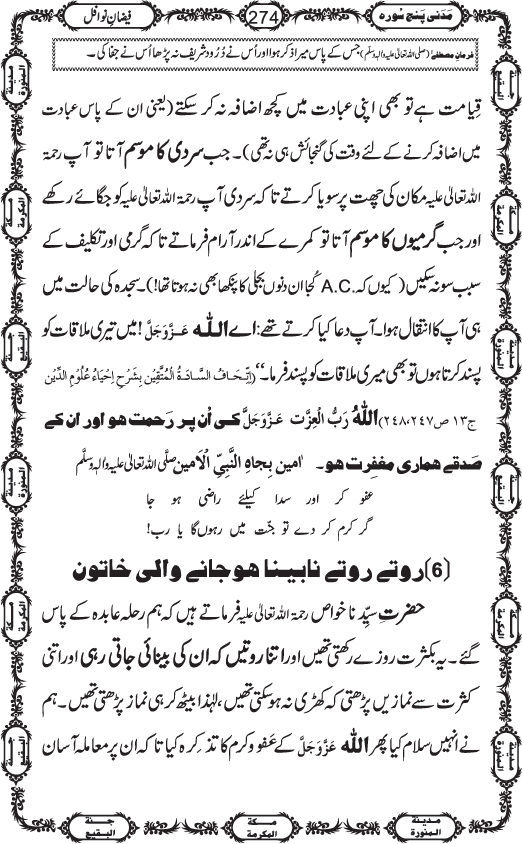 مَدَنی پَنْج سُورہ
274
فیضانِ نوافل
فرمانِ مصطفٰے (صلی اللہ تعالیٰ علیہ والہٖ وسلم) جس کے پاس میرا ذکر ہوا اور اُس نے دُرُود شریف نہ پڑھا اُس نے جفا کی۔
قِیامت ہے تو بھی اپنی عبادت میں کچھ اضافہ نہ کر سکتے (یعنی ان کے پاس عبادت
میں اضافہ کرنے کے لئے وقت کی گنجائش ہی نہ تھی)۔ جب سردی کا موسم آتا تو آپ رحمۃ
اللہ تعالیٰ علیہ مکان کی چھت پر سویا کرتے تا کہ سردی آپ رحمۃ اللہ تعالیٰ علیہ کو جگائے رکھے
اور جب گرمیوں کا موسم آتا تو کمرے کے اندر آرام فرماتے تا کہ گرمی اور تکلیف کے
سبب سو نہ سکیں (کیوں کہ .A.C کُجا ان دنوں بجلی کا پنکھا بھی نہ ہوتا تھا!)۔ سجدہ کی حالت میں
ہی آپ کا انتقال ہوا۔ آپ دعا کیا کرتے تھے: اے اللہ عَزَّوَجَلَّ! میں تیری ملاقات کو
پسند کرتا ہوں تو بھی میری ملاقات کو پسند فرما۔“ (اِتّحاف السَّادَۃُ الْمُتَّقِیْن بِشَرْحِ اِحْیَاءُ عُلُوْمِ الدِّیْن
ج۱۳ ص۲۴۷،۲۴۸) اللہُ رَبُّ الْعِزَّت عَزَّوَجَلَّ کی اُن پر رَحمت ہو اور ان کے
صدقے ہماری مغفِرت ہو۔ اٰمین بِجاہِ النَّبِیِّ الْاَمین صلَّی اللہ تعالیٰ علیہ والہٖ وسلَّم
عفو کر اور سدا کیلئے راضی ہو جا
گر کرم کر دے تو جنّت میں رہوں گا یا رب!
(6) روتے روتے نابینا ہوجانے والی خاتون
حضرتِ سیِّدنا خواص رحمۃ اللہ تعالیٰ علیہ فرماتے ہیں کہ ہم رحلہ عابدہ کے پاس
گئے۔ یہ بکثرت روزے رکھتی تھیں اور اتنا روتیں کہ ان کی بینائی جاتی رہی اور اتنی
کثرت سے نمازیں پڑھتی کہ کھڑی نہ ہو سکتی تھیں، لہٰذا بیٹھ کر ہی نماز پڑھتی تھیں۔ ہم
نے انہیں سلام کیا پھر اللہ عَزَّوَجَلَّ کے عَفو و کرم کا تذکِرہ کیا تا کہ ان پر معاملہ آسان
مدینۃ المنورۃ
جنۃ البقیع
مکۃ المکرمۃ
مدینۃ المنورۃ
جنۃ البقیع
مکۃ المکرمۃ
مدینۃ المنورۃ
جنۃ البقیع
مکۃ المکرمۃ
مدینۃ المنورۃ
جنۃ البقیع
مکۃ المکرمۃ
مدینۃ المنورۃ
جنۃ البقیع
مکۃ المکرمۃ
مدینۃ المنورۃ